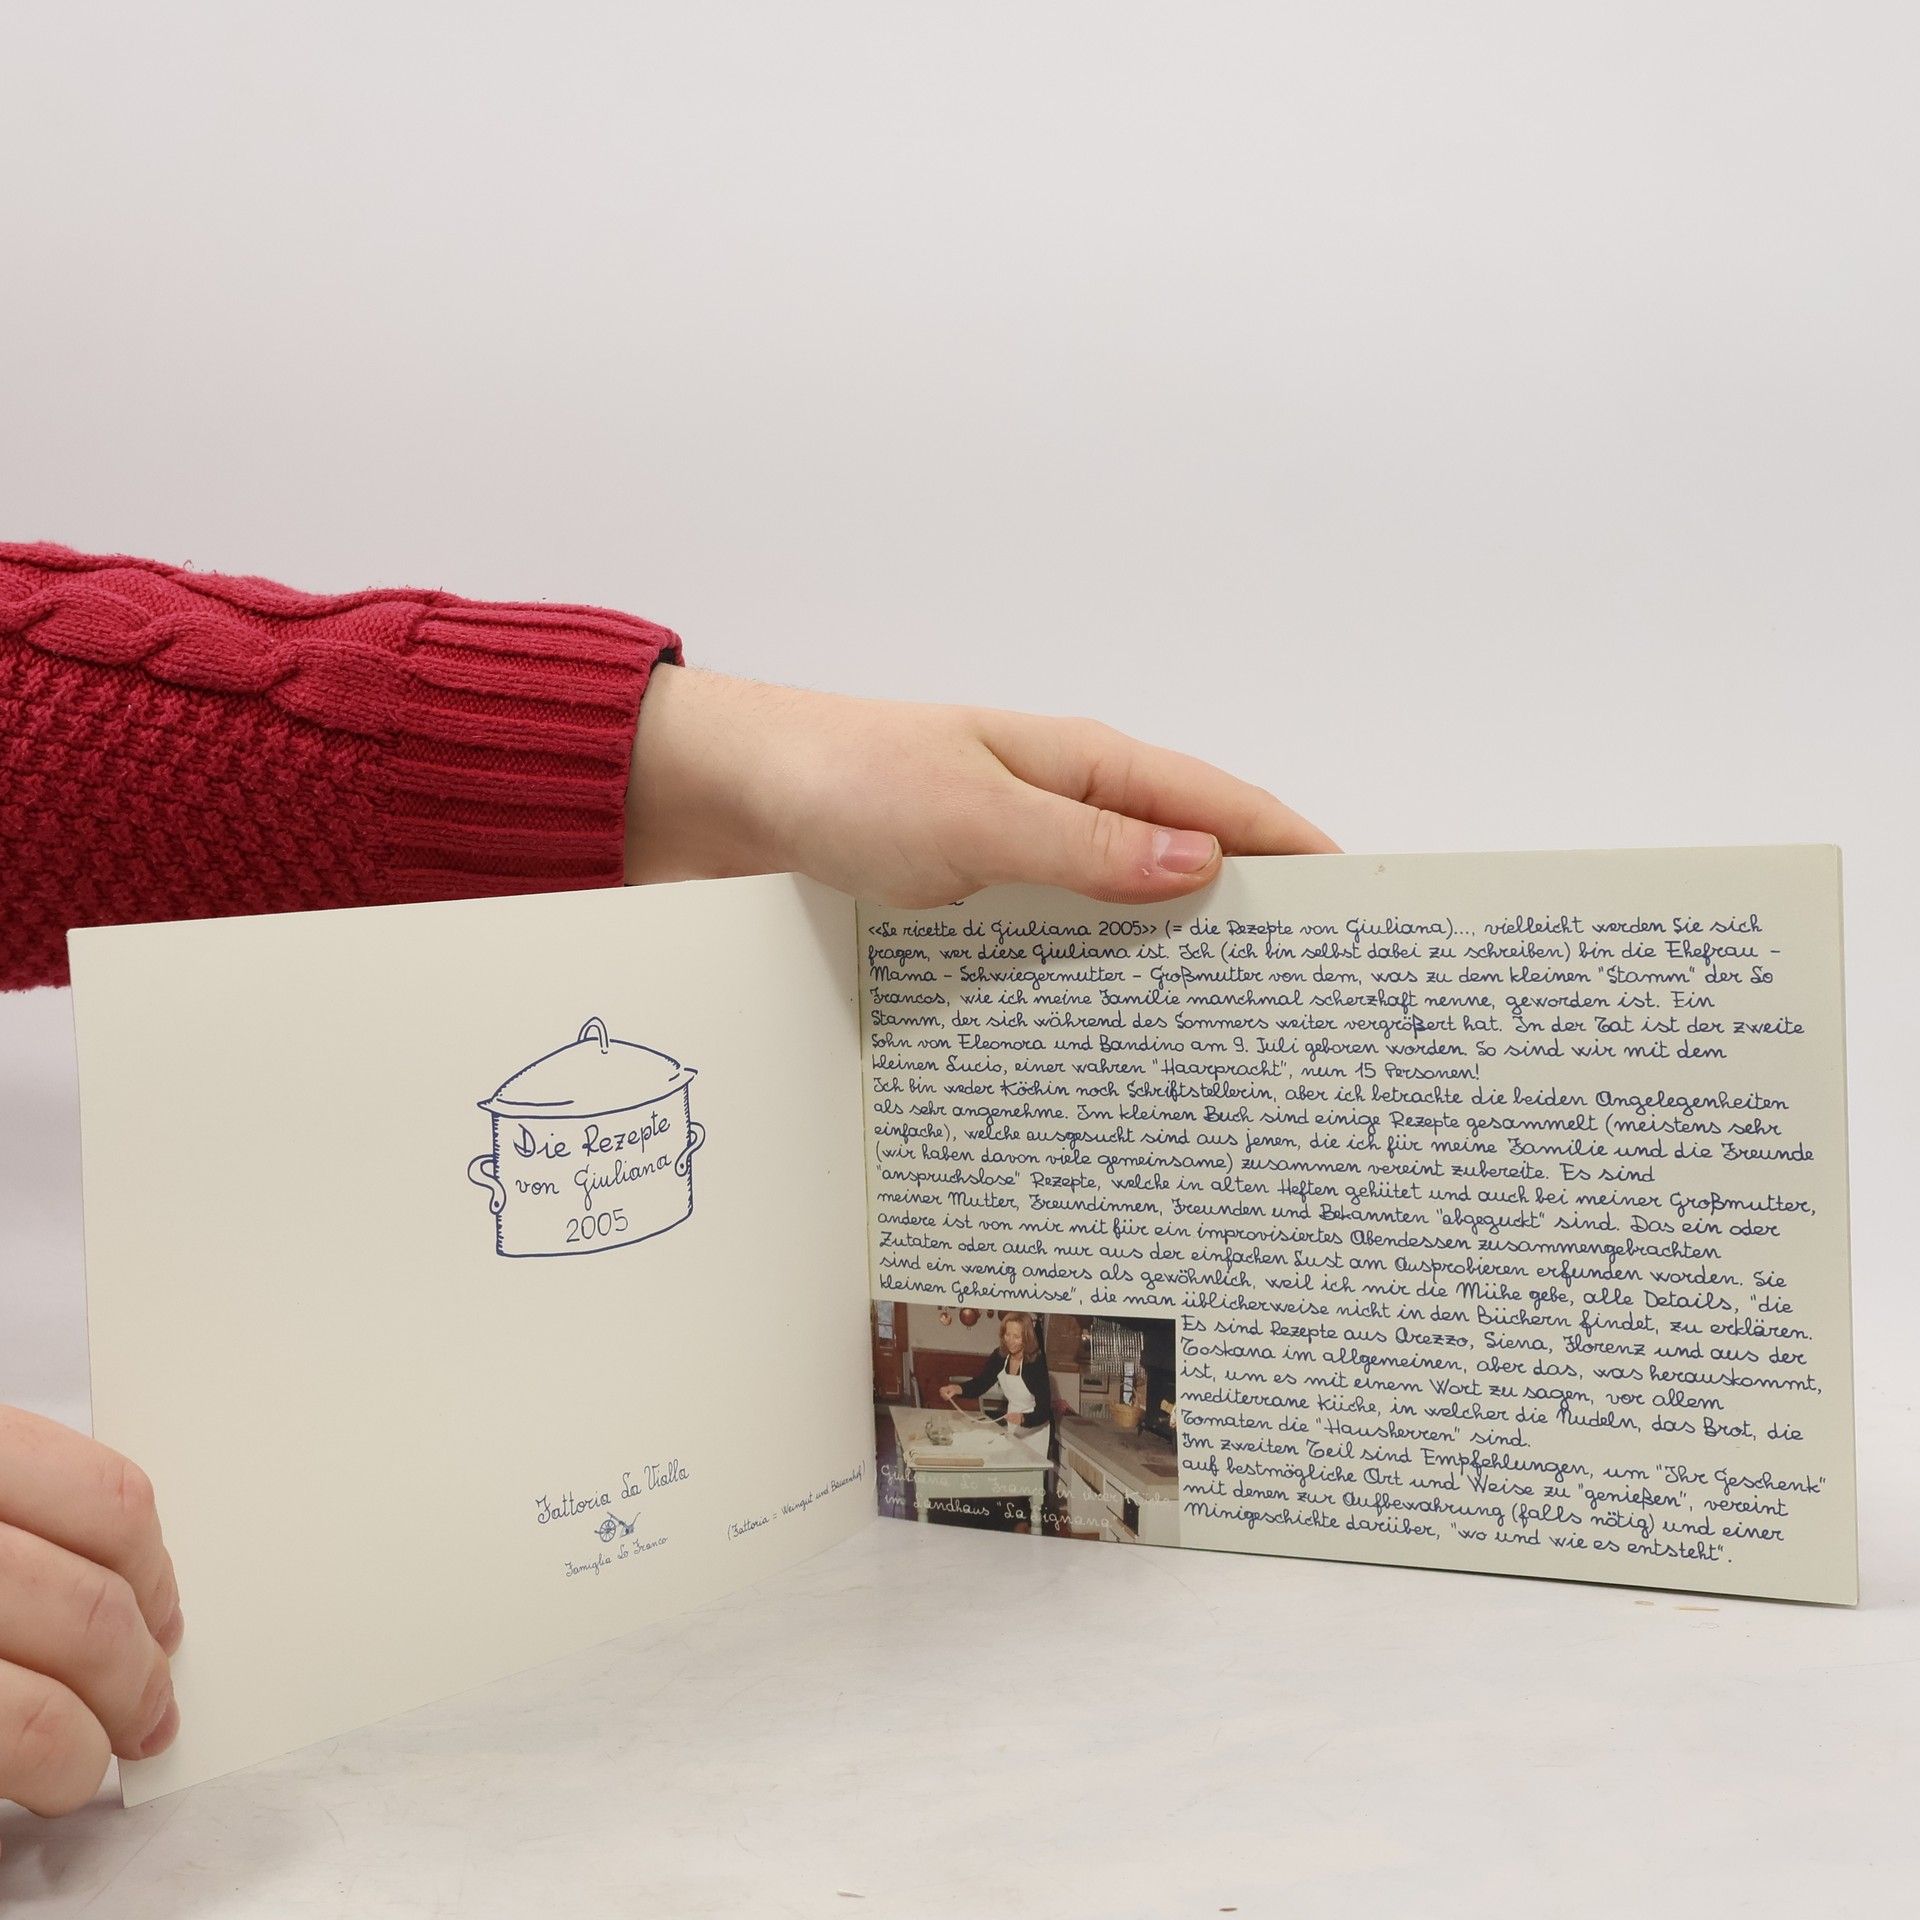 Die Rezepte
von Giuliana
2005
Fattoria La Vialla
Famiglia Lo Franco
(Fattoria = Weingut und Bauernhof)
«Le ricette di Giuliana 2005» (= die Rezepte von Giuliana)..., vielleicht werden Sie sich
fragen, wer diese Giuliana ist. Ich (ich bin selbst dabei zu schreiben) bin die Ehefrau -
Mama - Schwiegermutter - Großmutter von dem, was zu dem kleinen "Stamm" der Lo
Francos, wie ich meine Familie manchmal scherzhaft nenne, geworden ist. Ein
Stamm, der sich während des Sommers weiter vergrößert hat. In der Tat ist der zweite
Sohn von Eleonora und Bandino am 9. Juli geboren worden. So sind wir mit dem
kleinen Lucio, einer wahren "Haarpracht", nun 15 Personen!
Ich bin weder Köchin noch Schriftstellerin, aber ich betrachte die beiden Angelegenheiten
als sehr angenehme. Im kleinen Buch sind einige Rezepte gesammelt (meistens sehr
einfache), welche ausgesucht sind aus jenen, die ich für meine Familie und die Freunde
(wir haben davon viele gemeinsame) zusammen vereint zubereite. Es sind
"anspruchslose" Rezepte, welche in alten Heften gehütet und auch bei meiner Großmutter,
meiner Mutter, Freundinnen, Freunden und Bekannten "abgeguckt" sind. Das ein oder
andere ist von mir mit für ein improvisiertes Abendessen zusammengebrachten
Zutaten oder auch nur aus der einfachen Lust am Ausprobieren erfunden worden. Sie
sind ein wenig anders als gewöhnlich, weil ich mir die Mühe gebe, alle Details, "die
kleinen Geheimnisse", die man üblicherweise nicht in den Büchern findet, zu erklären.
Es sind Rezepte aus Arezzo, Siena, Florenz und aus der
Toskana im allgemeinen, aber das, was herauskommt,
ist, um es mit einem Wort zu sagen, vor allem
mediterrane Küche, in welcher die Nudeln, das Brot, die
Tomaten die "Hausherren" sind.
Im zweiten Teil sind Empfehlungen, um "Ihr Geschenk"
auf bestmögliche Art und Weise zu "genießen", vereint
mit denen zur Aufbewahrung (falls nötig) und einer
Minigeschichte darüber, "wo und wie es entsteht".
Giuliana Lo Franco in ihrer Küche
im Landhaus "La Signana"